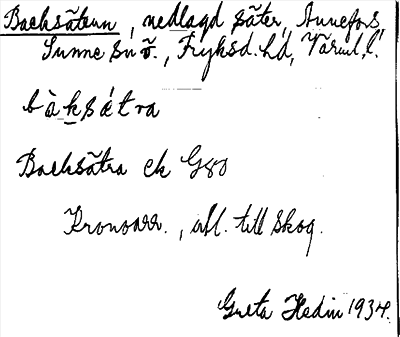 Backsätern, nedlagd säter, Annefors,
Sunne sn ö., Fryksd. hd, Värml. l.
bàksǽtra
Backsätra ek G80
Kronoarr., utl. till skog.
Greta Hedin 1934.